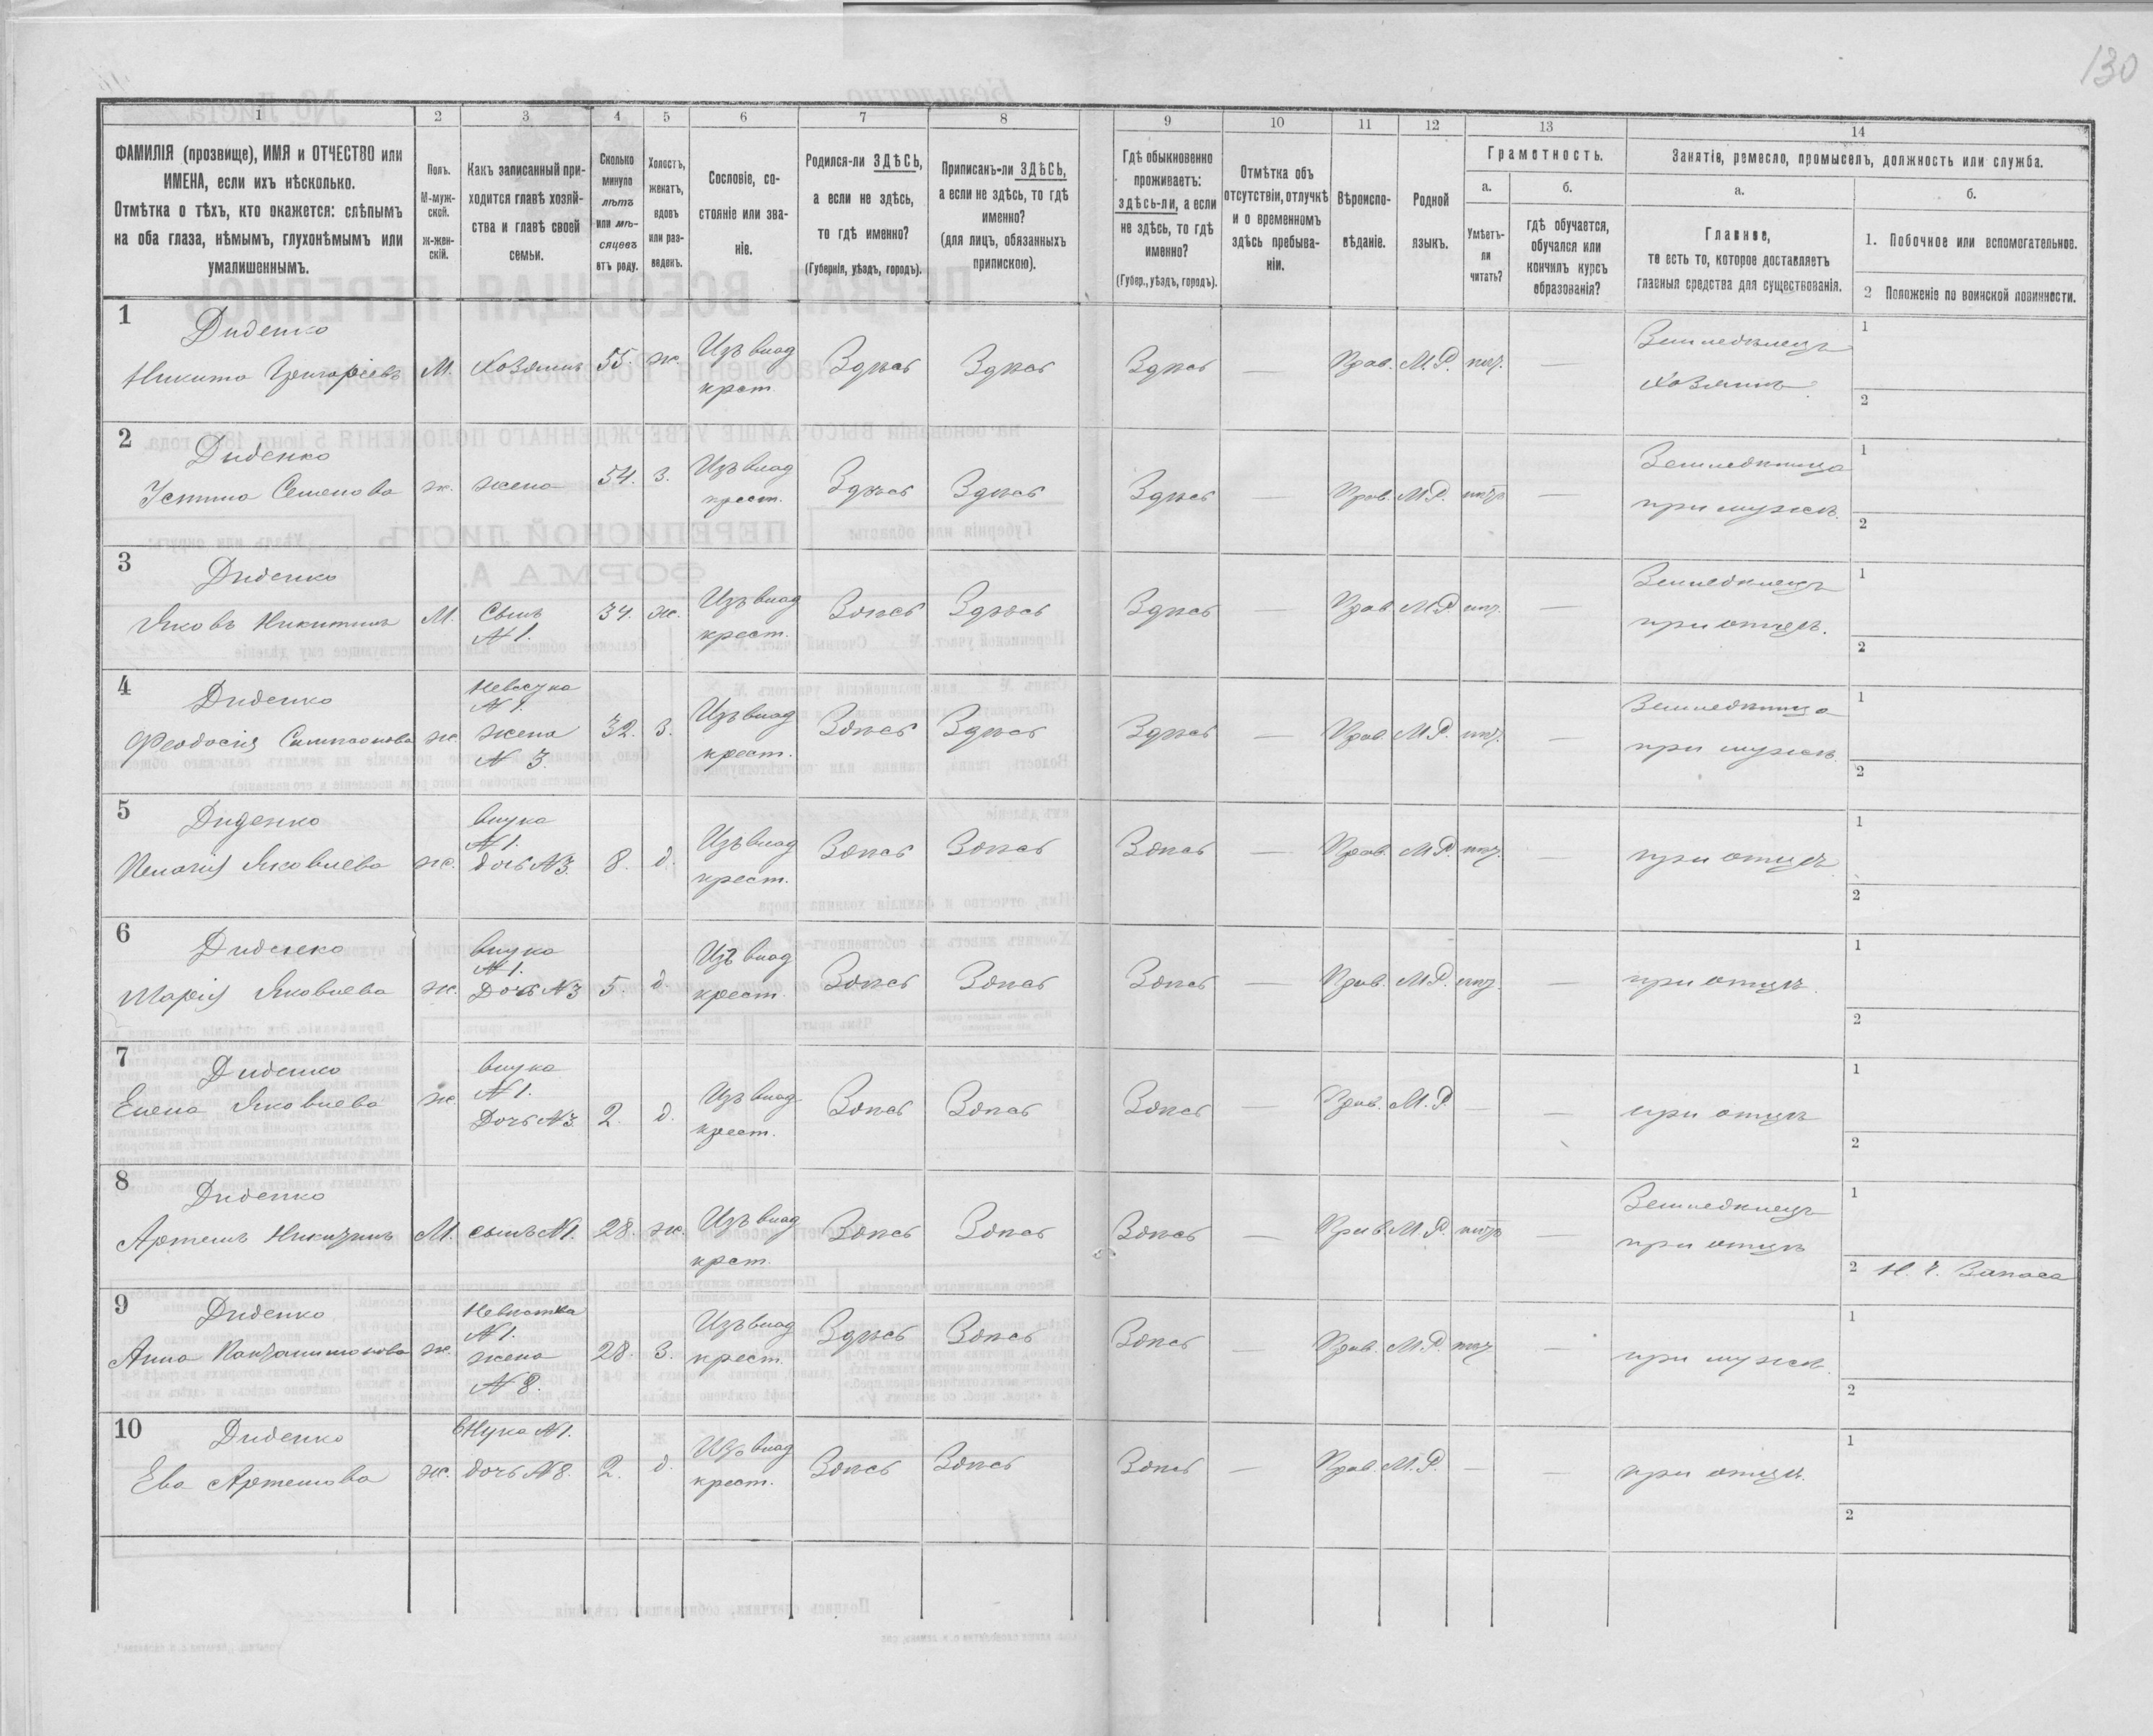 130
1 2 3 4 5 6 7 8 9 10 11 12 13 14
ФАМИЛІЯ (прозвище), ИМЯ и ОТЧЕСТВО или
ИМЕНА, если ихъ нѣсколько.
Отмѣтка о тѣхъ, кто окажется: слѣпымъ
на оба глаза, нѣмымъ, глухонѣмымъ или
умалишеннымъ.
Полъ.
М-муж-
ской.
ж-жен-
скій.
Какъ записанный при-
ходится главѣ хозяй-
ства и главѣ своей
семьи.
Сколько
минуло
лѣтъ
или мѣ-
сяцевъ
отъ роду.
Холостъ,
женатъ,
вдовъ
или раз-
веденъ.
Сословіе, со-
стояніе или зва-
ніе.
Родился-ли ЗДѢСЬ,
а если не здѣсь,
то гдѣ именно?
(Губернія, уѣздъ, городъ).
Приписанъ-ли ЗДѢСЬ,
а если не здѣсь, то гдѣ
именно?
(для лицъ, обязанныхъ
припискою).
Гдѣ обыкновенно
проживаетъ:
здѣсь-ли, а если
не здѣсь, то гдѣ
именно?
(Губер., уѣздъ, городъ).
Отмѣтка объ
отсутствіи, отлучкѣ
и о временномъ
здѣсь пребыва-
ніи.
Вѣроиспо-
вѣданіе.
Родной
языкъ.
Грамотность.
а.
Умѣетъ-
ли
читать?
б.
гдѣ обучается,
обучался или
кончилъ курсъ
образованія?
Занятіе, ремесло, промыселъ, должность или служба.
а.
Главное,
то есть то, которое доставляетъ
главныя средства для существованія.
б.
1. Побочное или вспомогательное.
2 Положеніе по воинской повинности.
1 Диденко
Никита Григорьевъ М. Хозяинъ 55. ж. Изъ влад крест. Здѣсь Здѣсь Здѣсь — Прав. М.Р. — Земледѣлецъ
Хозяинъ 1
2
2 Диденко
Устина Семенова ж. жена 54. З. Изъ влад крест. Здѣсь Здѣсь Здѣсь — Прав. М.Р. — Земледѣлица
при мужѣ. 1
2
3 Диденко
Яковъ Никитинъ М. Сынъ N 1. 34. ж. Изъ влад крест. Здѣсь Здѣсь Здѣсь — Прав М.Р. — Земледѣлецъ
при отцѣ. 1
2
4 Диденко
Феодосія ж. N 1. жена N 3. 32. З. Изъ влад крест. Здѣсь Здѣсь Здѣсь — Прав. М.Р. — Земледѣлица
при мужѣ. 1
2
5 Диденко
Яковлева ж. внука N 1. дочь N 3. 8. д. Изъ влад крест. Здѣсь Здѣсь Здѣсь — Прав. М.Р. — при отцѣ 1
2
6 Диденко
Марія Яковлева ж. внука N 1. Дочь N 3 5. д. Изъ влад крест. Здѣсь Здѣсь Здѣсь — Прав. М.Р. — при отцѣ. 1
2
7 Диденко
Елена Яковлева ж. внука N 1. Дочь N 3. 2. д. Изъ влад крест. Здѣсь Здѣсь Здѣсь — Прав. М.Р. — — при отцѣ 1
2
8 Диденко
Артемъ Никитинъ М. сынъ N 1. 28. ж. Изъ влад крест. Здѣсь Здѣсь Здѣсь — Прав. М.Р. — Земледѣлецъ
при отцѣ 1
2 Н. Ч. Запаса
9 Диденко
Анна ж. Невѣстка N 1. жена N 8. 28. З. Изъ влад крест. Здѣсь Здѣсь Здѣсь — Прав. М.Р. — при мужѣ. 1
2
10 Диденко
Ева Артемова ж. внука N 1. дочь N 8. 2. д. Изъ влад крест. Здѣсь Здѣсь Здѣсь — Прав. М.Р. — — при отцѣ. 1
2